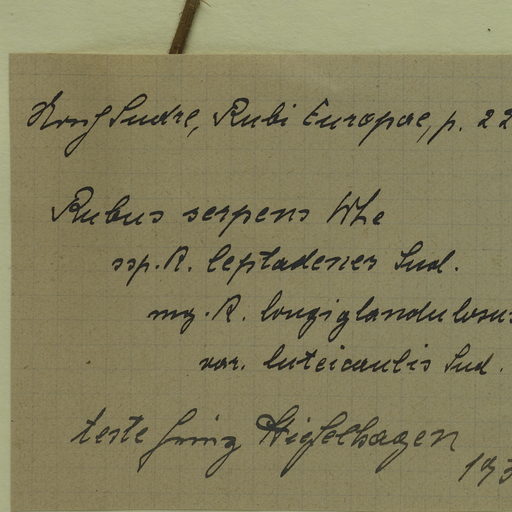 Sudre, Rubi Europae, p. 22
Rubus serpens Whe
ssp. R. leptadenes Sud.
mg. R. longiglandulosus
var. luteicaulis Sud.
teste
193